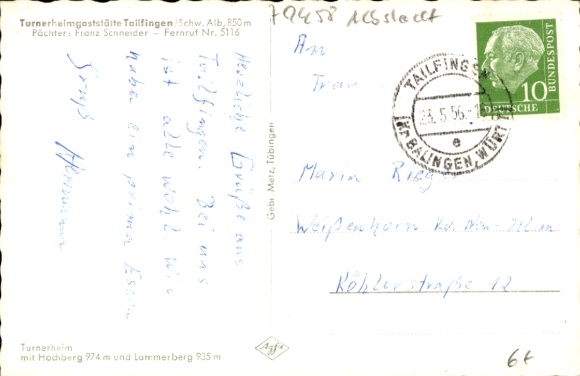 Turnerheimgaststätte Tailfingen/Schw. Alb, 850 m
Pächter: Franz Schneider – Fernruf Nr. 5116
Herzliche Grüße aus
Tailfingen. Bei uns
ist alle wohl. Wir
haben ein prima Essen
Gruß
Hermann
Turnerheim
mit Hochberg 974 m und Lammerberg 935 m
Gebr. Metz, Tübingen
Agfa
An
Frau
Maria
Weißenhorn
Köhlerstraße 12
TAILFINGEN
23.5.56
e
(Kr. BALINGEN, WÜRTT)
10
DEUTSCHE
BUNDESPOST
79458
6t